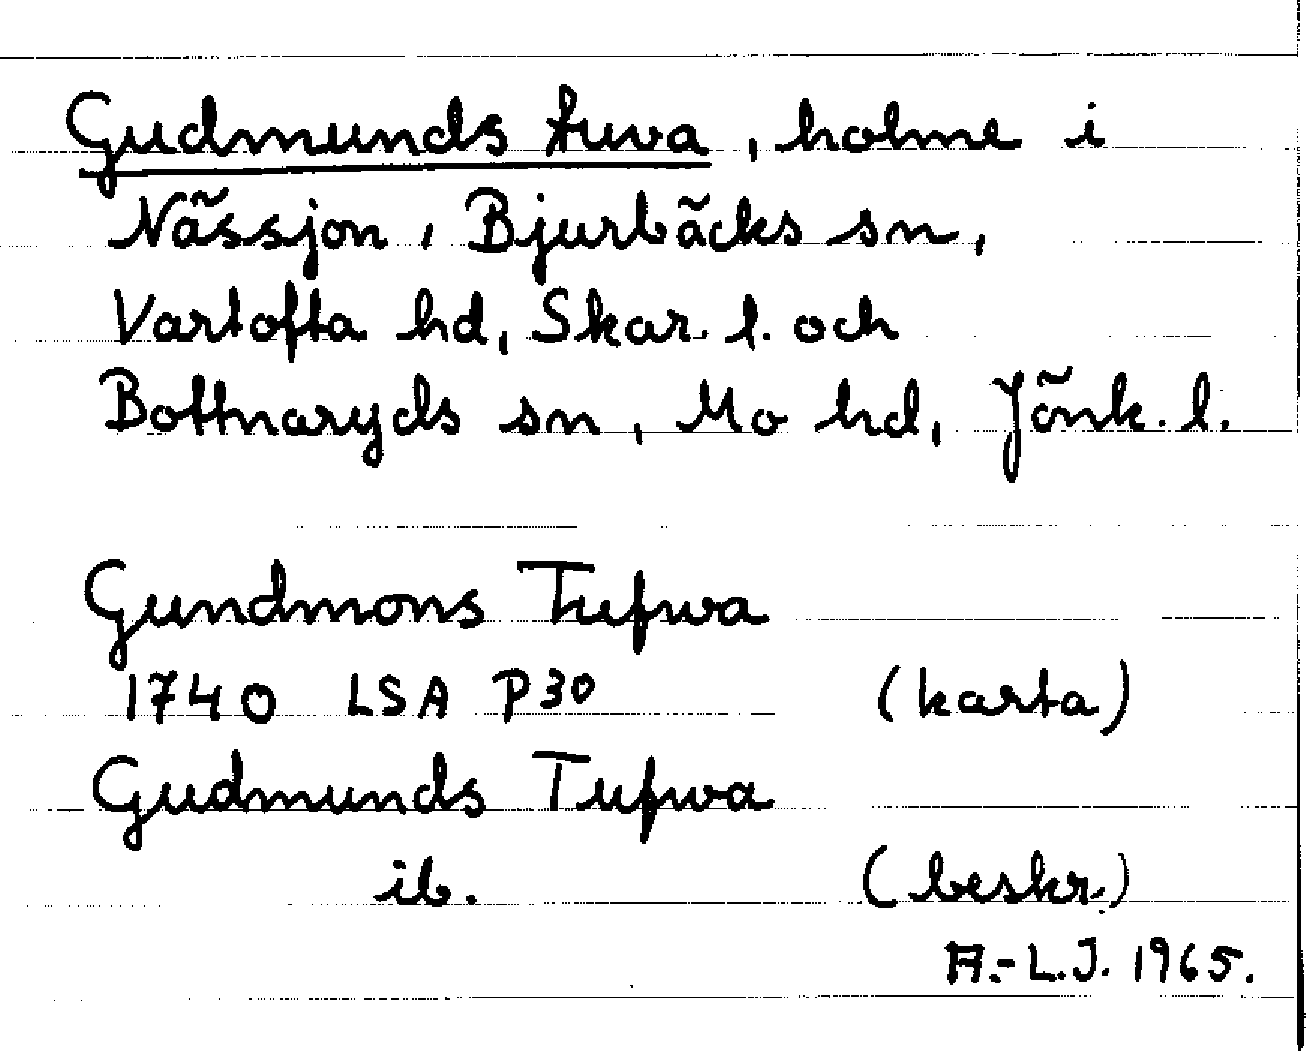 Gudmunds tuva, holme i
Nässjön, Bjurbäcks sn,
Vartofta hd, Skar. l. och
Bottnaryds sn, Mo hd, Jönk. l.
Gundmons Tufwa
1740 LSA P30 (karta)
Gudmunds Tufwa
ib. (beskr.)
A.-L.J. 1965.